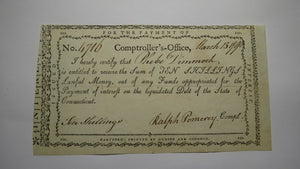 FOR THE PAYMENT OF
No. 4716 Comptroller's-Office, March 18 1790
I hereby certify that Dimmock
is entitled to receive the Sum of TEN SHILLINGS
Lawful Money, out of any Funds appropriated for the
Payment of interest on the liquidated Debt of the State of
Connecticut.
Ten Shillings Ralph Pomeroy Compt.
HARTFORD: PRINTED BY HUDSON AND GOODWIN.